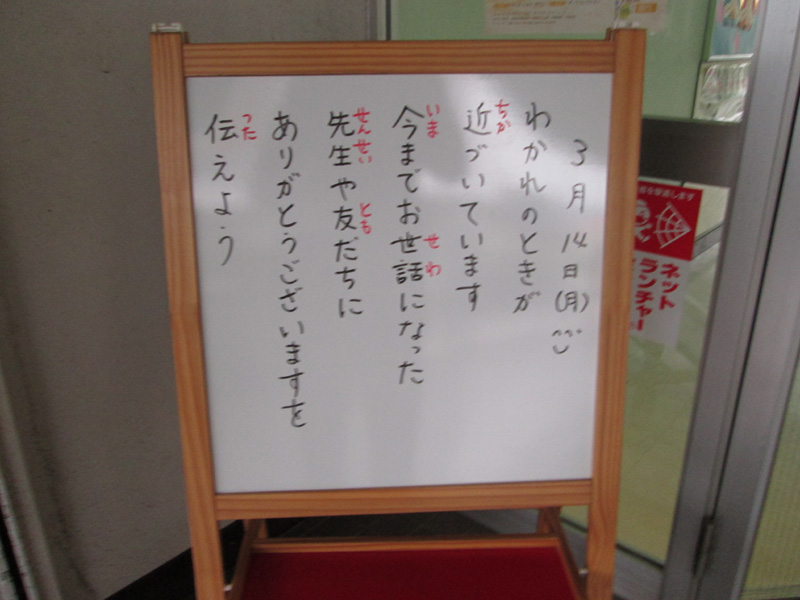 3月14日(月)
わかれのときが
近づいています
今までお世話になった
先生や友だちに
ありがとうございますを
伝えよう
ちか
いま
せわ
せんせい
とも
つた
ネット
ランチャー